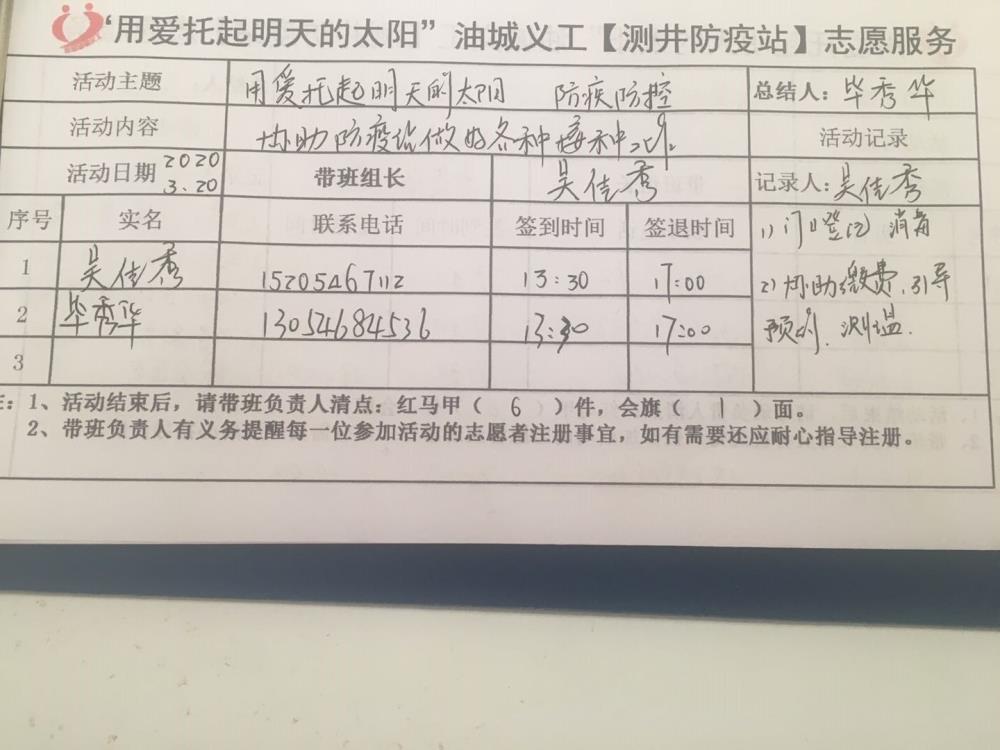 “用爱托起明天的太阳”油城义工【测井防疫站】志愿服务
活动主题 用爱托起明天的太阳 防疾防控 总结人：毕秀华
活动内容 协助防疫站做好各种接种工作 活动记录
活动日期 2020 3.20 带班组长 吴佳秀 记录人：吴佳秀
序号 实名 联系电话 签到时间 签退时间 1)门口登记 消毒
1 吴佳秀 15205467112 13:30 17:00 2)协助缴费、引导
2 毕秀华 13054684536 13:30 17:00 预约、测温.
3
注：1、活动结束后，请带班负责人清点：红马甲（ 6 ）件，会旗（ 1 ）面。
2、带班负责人有义务提醒每一位参加活动的志愿者注册事宜，如有需要还应耐心指导注册。